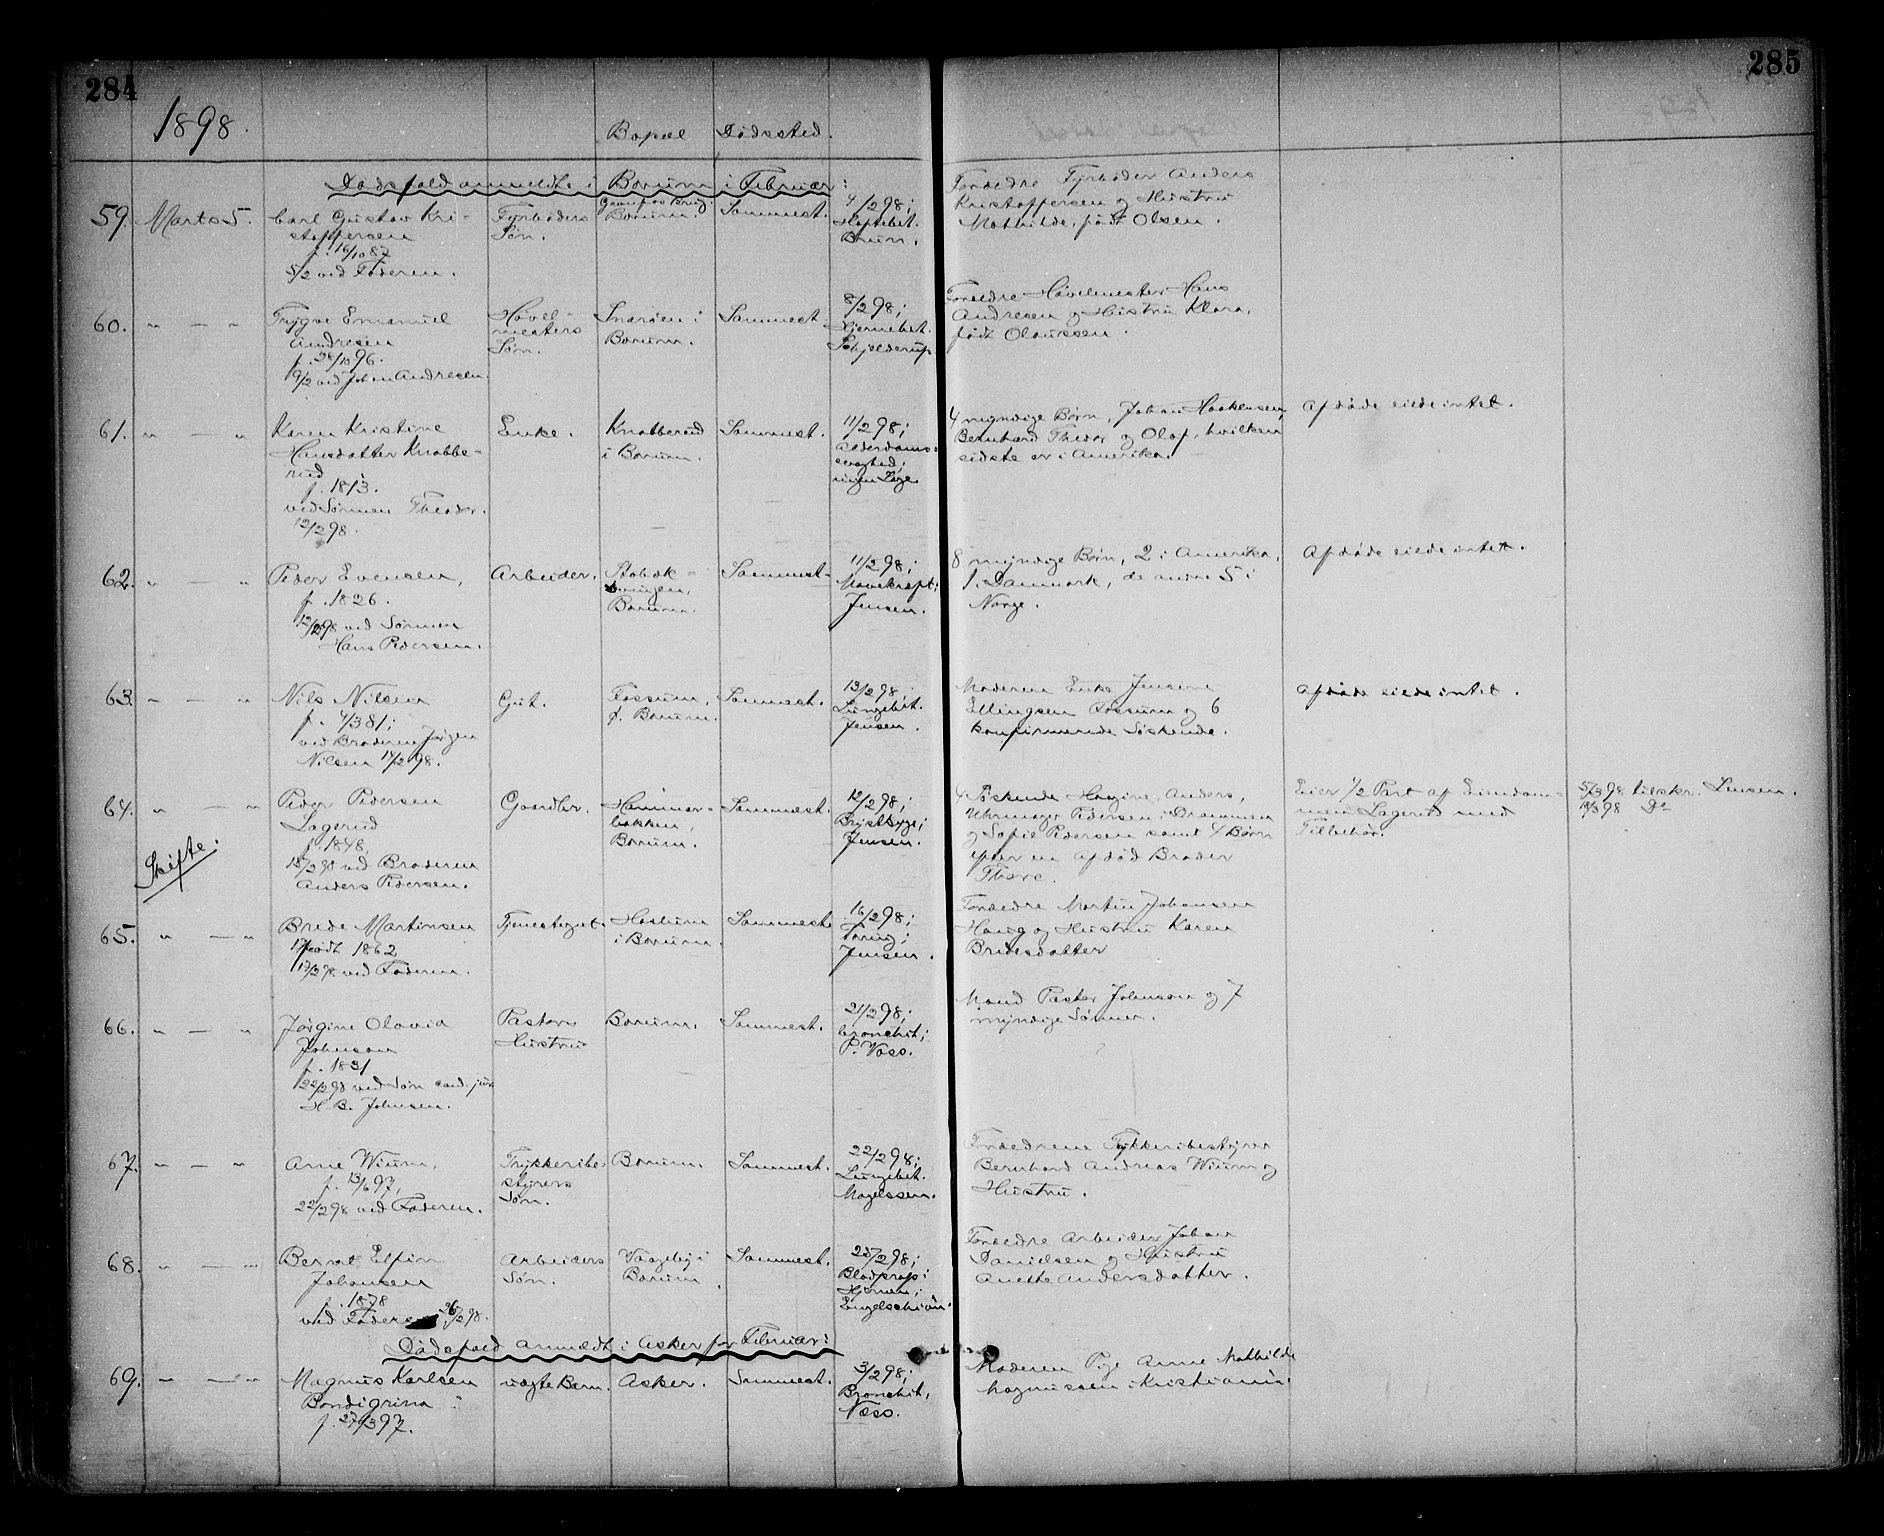 284
285
1898.
Bopæl Dødssted.
Dødsfald anmeldte i Bærum i Februar:
59. Marts 5. Carl Gustav Kri-
stoffersen
f. 16/10 87
5/2 ved Faderen.
Fyrbøders
Søn.
Bærum.
Sammest.
4/2 98;
Bruun.
Forældre Fyrbøder Anders
Kristoffersen og Hustru
Mathilde, født Olsen.
60. " — " Trygve Emanuel
Andresen
f. /10 96.
9/2 ved Johan Andresen.
Høvel-
mesters
Søn.
Snarøen i
Bærum.
Sammest.
8/2 98;
Hjernebet.
Schjelderup
Forældre Høvelmester Hans
Andresen og Hustru Klara,
født Olaussen.
61. " — " Karen Kristine
Hansdatter Knabbe-
rud
f. 1813.
ved Sønnen Theodor.
12/2 98.
Enke.
Knabberud
i Bærum.
Sammest.
11/2 98;
Alderdoms-
svaghed;
ingen Læge
4 myndige Børn, Johan Haakensen,
Bernhard Theodor og Olaf, hvilken
sidste er i Amerika.
Afdøde eiede intet.
62. " — " Peder Evensen,
f. 1826.
12/2 98 ved Sønnen
Hans Pedersen.
Arbeider.
Stabæk-
Bærum.
Sammest.
11/2 98;
Mavekræft;
Jensen.
8 myndige Børn, 2 i Amerika,
1 i Danmark, de andre 5 i
Norge.
Afdøde eiede intet.
63. " — " Nils Nilsen
f. 4/3 81;
ved Broderen Jørgen
Nilsen 14/2 98.
Gut.
Fossum,
Ø. Bærum.
Sammest.
13/2 98,
Lungebet.
Jensen.
Moderen Enke Jensine
Ellingsen Fossum og 6
konfirmerede Søskende.
Afdøde eiede intet.
64. " — " Peder Pedersen
Lagerud
f. 1848,
15/2 98 ved Broderen
Anders Pedersen.
Skifte.
Gaardbr.
Hammer-
bakken,
Bærum.
Sammest.
12/2 98;
Brystsyge;
Jensen.
4 Søskende Hagine, Anders,
Uhrmager Pedersen i Drammen
og Sofie Pedersen samt 4 Børn
efter en afdød Broder
Thore.
Eier 1/2 Part af Eiendom-
men Lagerud med
Tilbehør.
5/3 98 tilskr. Lensm.
/3 98 Do
65. " — " Brede Martinsen
født 1862
17/2 98 ved Faderen.
Tjenestegut.
Haslum
i Bærum.
Sammest.
16/2 98;
Tæring;
Jensen.
Forældre Martin Johansen
Haug og Hustru Karen
Bredesdatter
66. " — " Jørgine Olavia
Johnson
f. 1831
22/2 98 ved Søn cand. jur.
H. B. Johnson.
Pastors
Hustru
Bærum.
Sammest.
21/2 98;
bronchit;
P. Voss.
Mand Pastor Johnson og 7
myndige Sønner.
67. " — " Arne Wium,
f. 13/6 97,
22/2 98 ved Faderen.
Trykkeribe-
styrers
Søn.
Bærum.
Sammest.
22/2 98;
Lungebet.
Magelssen.
Forældrene Trykkeribestyrer
Bernhard Andreas Wium og
Hustru.
68. " — " Bernt Elfin
Johansen
f. 1878
ved Faderen 26/2 98.
Arbeiders
Søn.
Vaageby i
Bærum.
Sammest.
25/2 98;
Blodprop i
Hjernen;
Engelschiøn.
Forældre Arbeider Johan
Danielsen og Hustru
Anette Andersdatter.
Dødsfald anmeldt i Asker for Februar:
69. " — " Magnus Karlsen
Bondigrina
f. 27/3 97.
uægte Barn.
Asker.
Sammest.
3/2 98;
Bronchit,
Næss.
Moderen Pige Anne Mathilde
Magnussen i Kristiania.